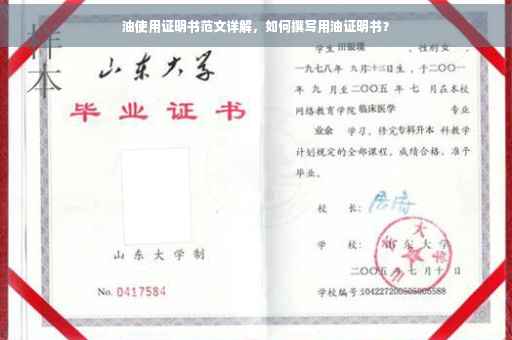 油使用证明书范文详解，如何撰写用油证明书？
样本
山东大学
毕业证书
山东大学制
No. 0417584
学生 田银环 ，性别女 ，
一九七八年 九月十三日生，于二〇〇一
年 九 月至二〇〇五 年 七 月在本校
网络教育学院 临床医学 专业
业余 学习，修完专科升本 科教学
计划规定的全部课程，成绩合格，准予
毕业。
校 长：
学 校： 山东大学
二〇〇五 年 七 月 十 日
学校编号：104227200505005588